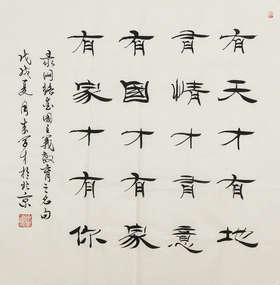 有天才有地
有情才有意
有國才有家
有家才有你
录网络爱国主義教育之名句
戊戌夏月 於北京